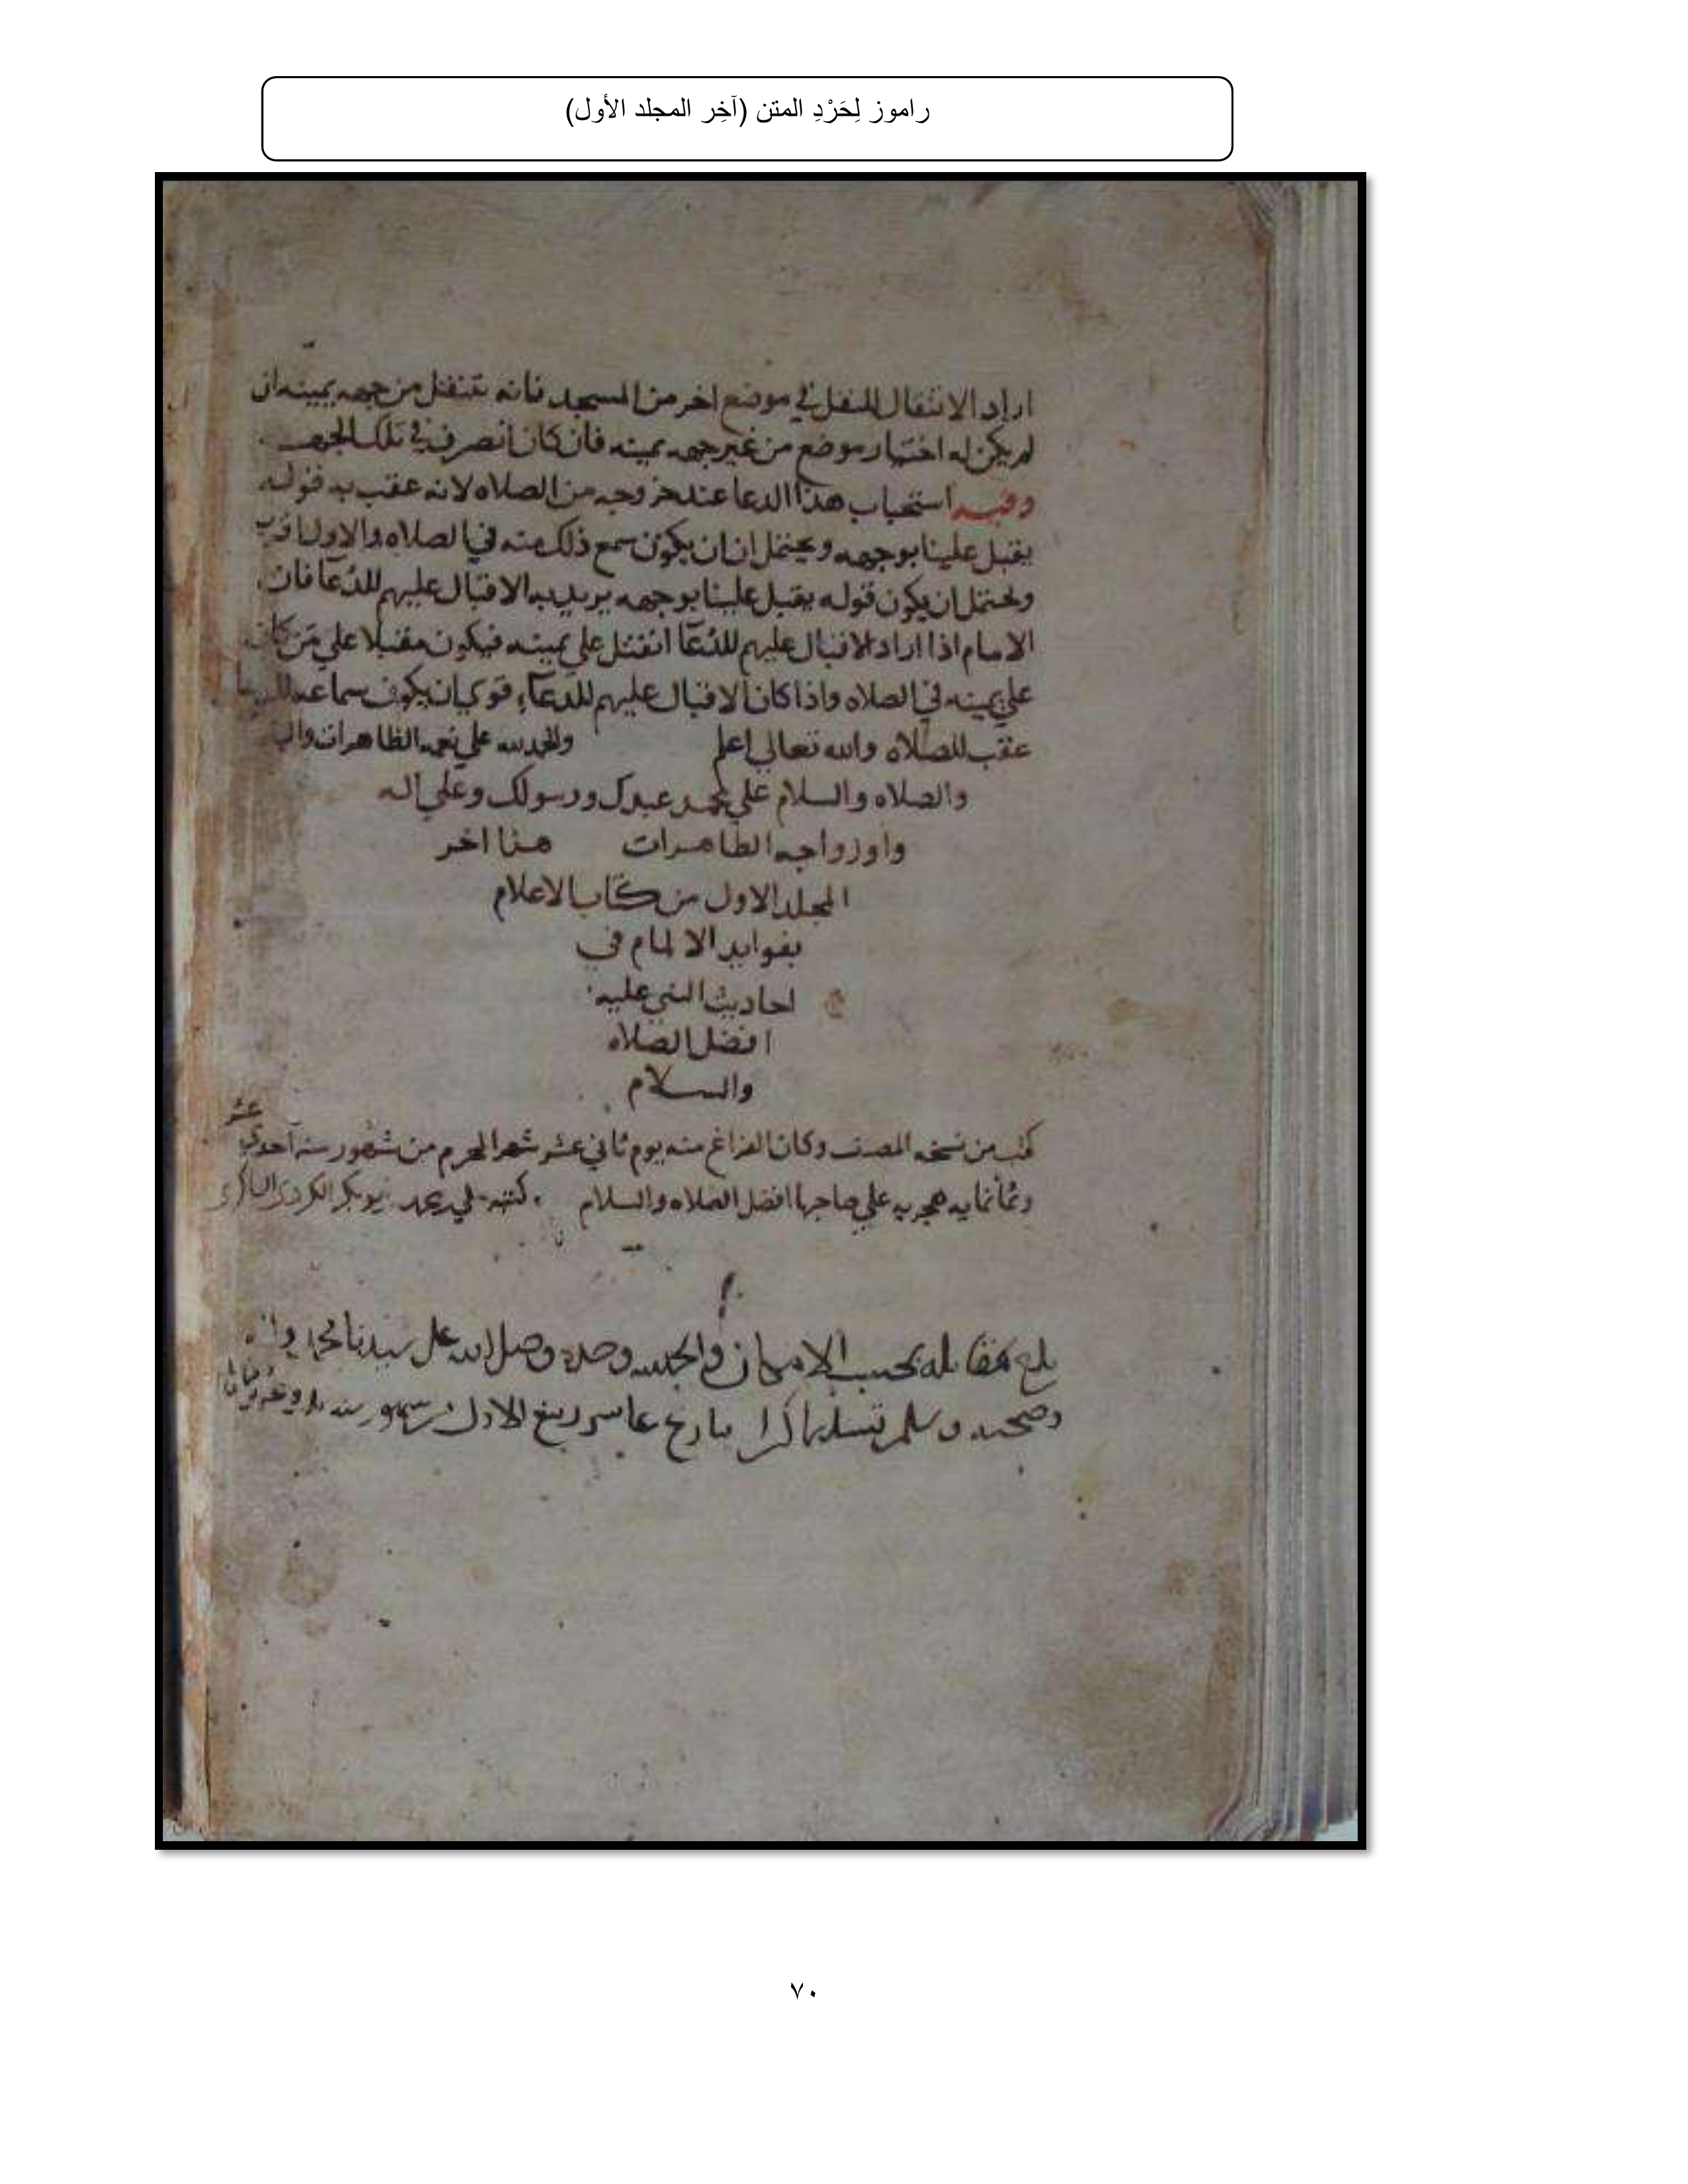 راموز لِحَرْدِ المتن (آخِر المجلد الأول)
اراد الانتقال للنفل في موضع اخر من المسجد فانه يتنفل من جهه يمينه ان
لم يكن له اختيار موضع من غير جهه يمينه فان كان انصرف في تلك الجهه
وفيه استحباب هذا الدعا عند خروجه من الصلاه لانه عقب به قوله
يقبل علينا بوجهه ويحتمل ان ان يكون سمع ذلك منه في الصلاه والاول اقرب
ويحتمل ان يكون قوله يقبل علينا بوجهه يريد به الاقبال عليهم للدعا فان
الامام اذا اراد الاقبال عليهم للدعا انفتل على يمينه فيكون مقبلا على من كان
على يمينه في الصلاه واذا كان الاقبال عليهم للدعاء قوي ان يكون سماعه
عقب الصلاه والله تعالى اعلم والحمد لله على نعمه الظاهرات
والصلاه والسلام على محمد عبدك ورسولك وعلى اله
وازواجه الطاهرات هذا اخر
المجلد الاول من كتاب الاعلام
بفوايد الالمام في
احاديث النبي عليه
افضل الصلاه
والسلام
كتب من نسخه المصنف وكان الفراغ منه يوم ثاني عشر شهر المحرم من شهور سنه احدي عشر
وثمانمايه هجريه على صاحبها افضل الصلاه والسلام كتبه علي بن محمد الكردي
بلغ مقابله بحسب الامكان والحمد لله وحده وصلى الله على سيدنا محمد واله
وصحبه وسلم تسليما كثيرا بتاريخ عاشر ربيع الاول من شهور سنه
٧٠